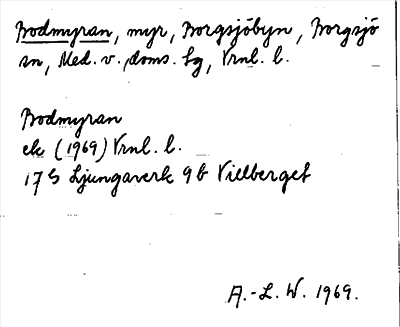 Bodmyran, myr, Borgsjöbyn, Borgsjö
sn, Med. v. doms. sg, Vrnl. l.
Bodmyran
ek (1969) Vrnl. l.
17G Ljungaverk 9b Villberget
A.-L. W. 1969.